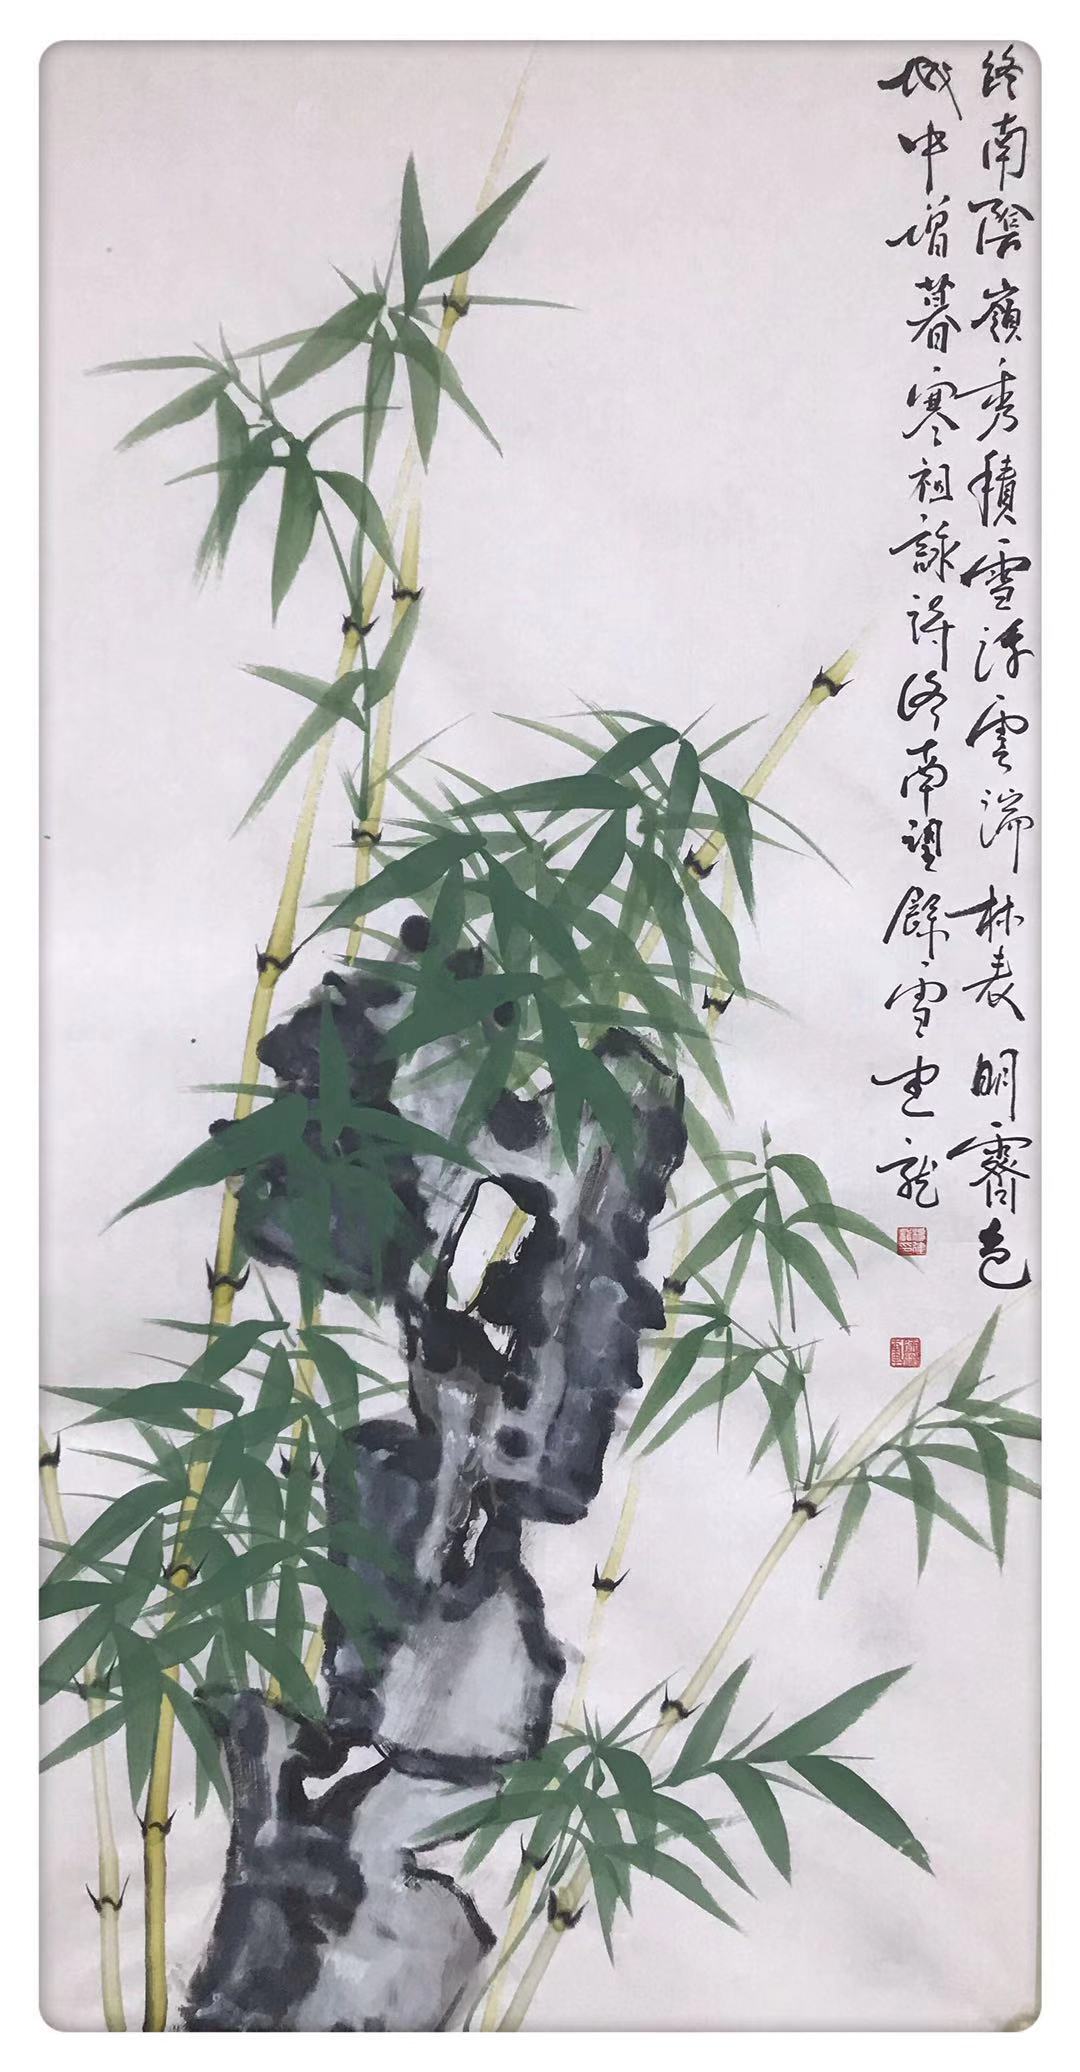 終南陰嶺秀積雪浮雲端林表明霽色
城中增暮寒祖詠詩終南望餘雪建龍